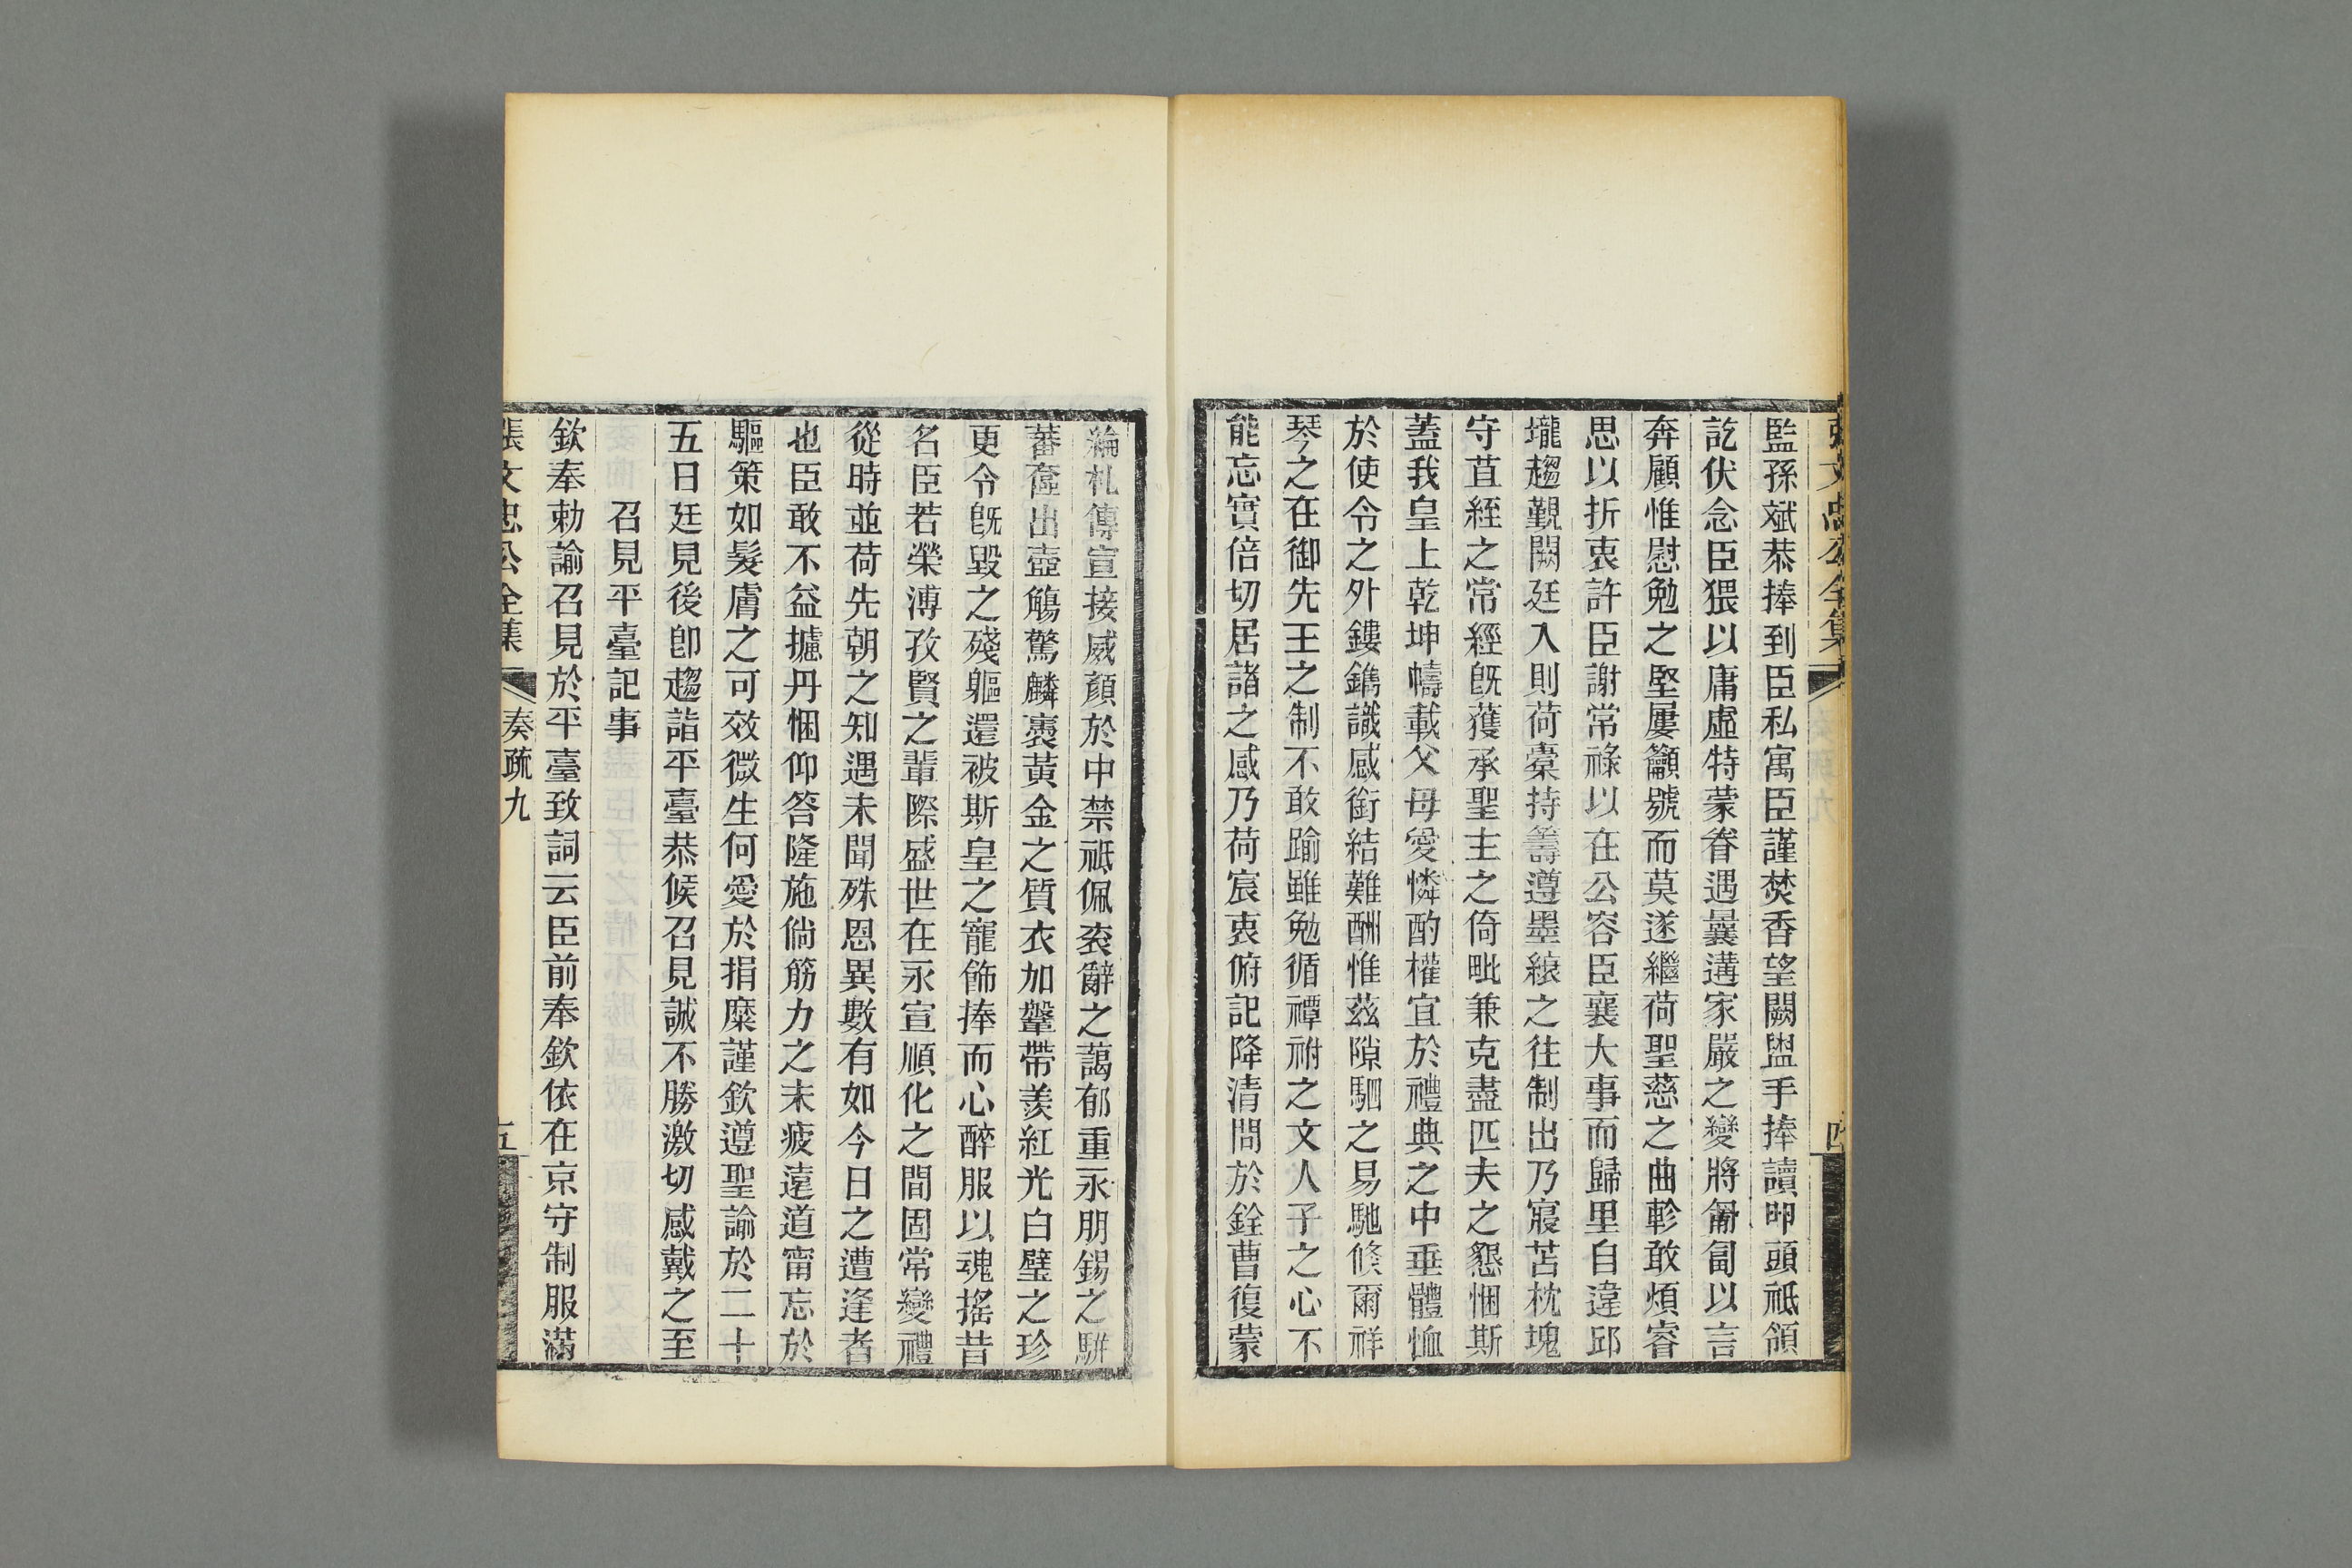 張文忠公全集
四
監孫斌恭捧到臣私寓臣謹焚香望闕盥手捧讀叩頭祗領
訖伏念臣猥以庸虛特蒙眷遇曩遘家嚴之變將匍匐以言
奔顧惟慰勉之堅屢籲號而莫遂繼荷聖慈之曲軫敢煩睿
思以折衷許臣謝常祿以在公容臣襄大事而歸里自違邱
壠趨覲闕廷入則荷橐持籌遵墨縗之往制出乃寢苫枕塊
守苴絰之常經旣獲承聖主之倚毗兼克盡匹夫之懇悃斯
蓋我皇上乾坤幬載父母愛憐酌權宜於禮典之中垂體恤
於使令之外鏤鐫識感銜結難酬惟茲隙駟之易馳倐爾祥
琴之在御先王之制不敢踰雖勉循禫祔之文人子之心不
能忘實倍切居諸之感乃荷宸衷俯記降清問於銓曹復蒙
綸札傳宣接威顏於中禁祗佩衮辭之藹郁重永朋錫之駢
蕃奩出壺觴驚麟褭黃金之質衣加鞶帶羨紅光白璧之珍
更令旣毀之殘軀還被斯皇之寵飾捧而心醉服以魂搖昔
名臣若榮溥孜賢之輩際盛世在永宣順化之間固常變禮
從時並荷先朝之知遇未聞殊恩異數有如今日之遭逢者
也臣敢不益攄丹悃仰答隆施倘筋力之未疲遠道甯忘於
驅策如髮膚之可效微生何愛於捐糜謹欽遵聖諭於二十
五日廷見後卽趨詣平臺恭候召見誠不勝激切感戴之至
召見平臺記事
欽奉勅諭召見於平臺致詞云臣前奉欽依在京守制服滿
張文忠公全集
奏疏九
五